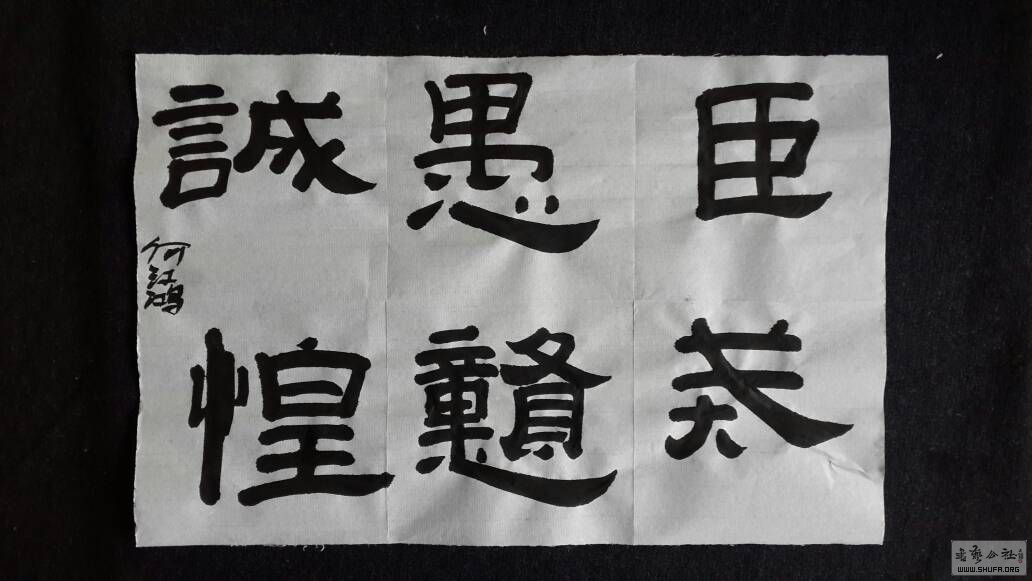 臣戒
愚戇
誠惶
何红鸿
書藝公社
WWW.SHUFA.ORG